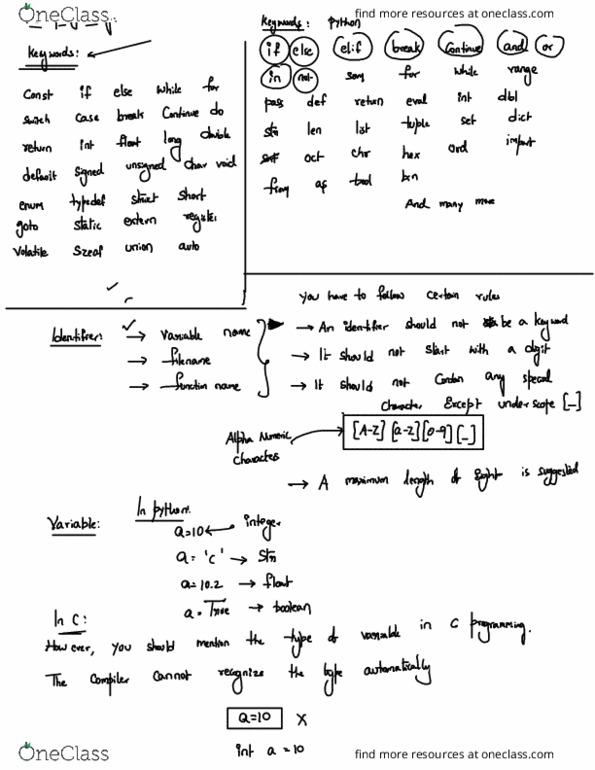 OneClass
find more resources at oneclass.com
Keywords:
Const if else while for
switch case break Continue do
return int float long double
default signed unsigned char void
enum typedef struct short
goto static extern register
Volatile Sizeof union auto
Keywords: python
if else elif break Continue and or
in not for while range
pass def return eval int dbl
str len list tuple set dict
oct chr hex ord import
from as bool bin
And many more
You have to follow certain rules
Identifier:
→ Variable name
→ filename
→ function name
→ An identifier should not be a keyword
→ It should not start with a digit
→ It should not Contain any special
Character Except underscope [_]
Alpha Numeric
Characters
[A-Z] [a-z] [0-9] [_]
→ A maximum length of Eight is suggested
Variable:
In python:
a=10 ← integer
a = 'c' → Str
a = 10.2 → float
a = True → boolean
In C:
However, you should mention the type of variable in C programming.
The Compiler Cannot recognize the type automatically
a=10 X
int a = 10
OneClass
find more resources at oneclass.com